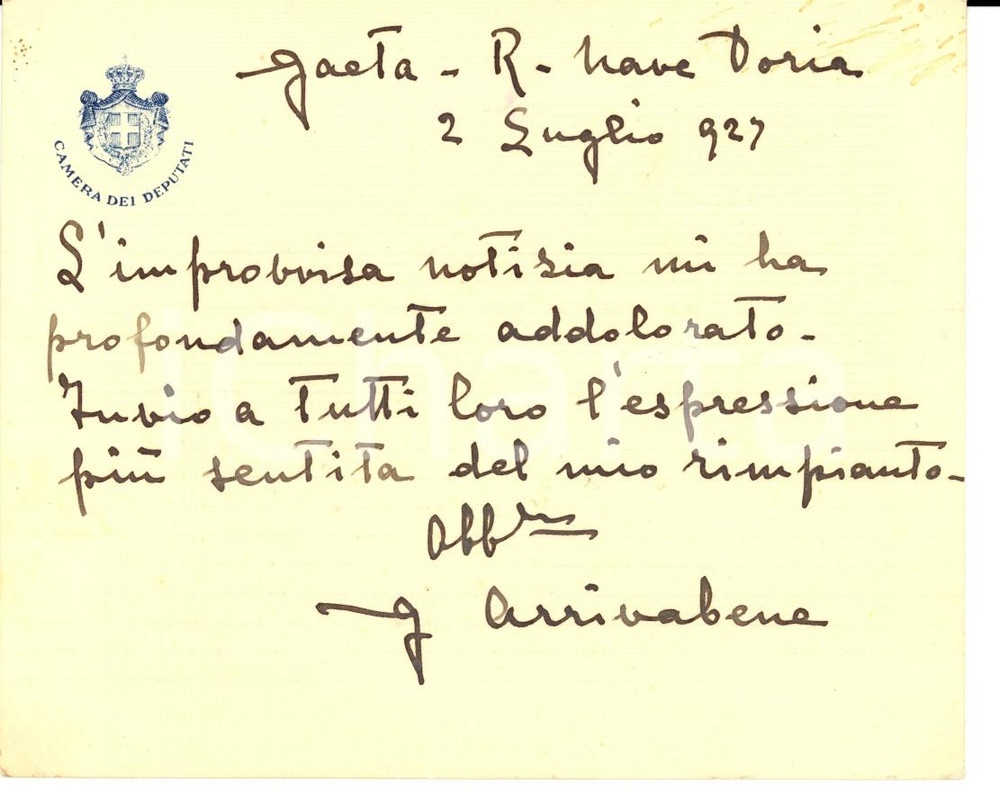 Gaeta - R. Nave Doria
2 Luglio 927
CAMERA DEI DEPUTATI
L'improvvisa notizia mi ha
profondamente addolorato -
Invio a tutti loro l'espressione
più sentita del mio rimpianto -
Obb mo
G Arrivabene
iCharta